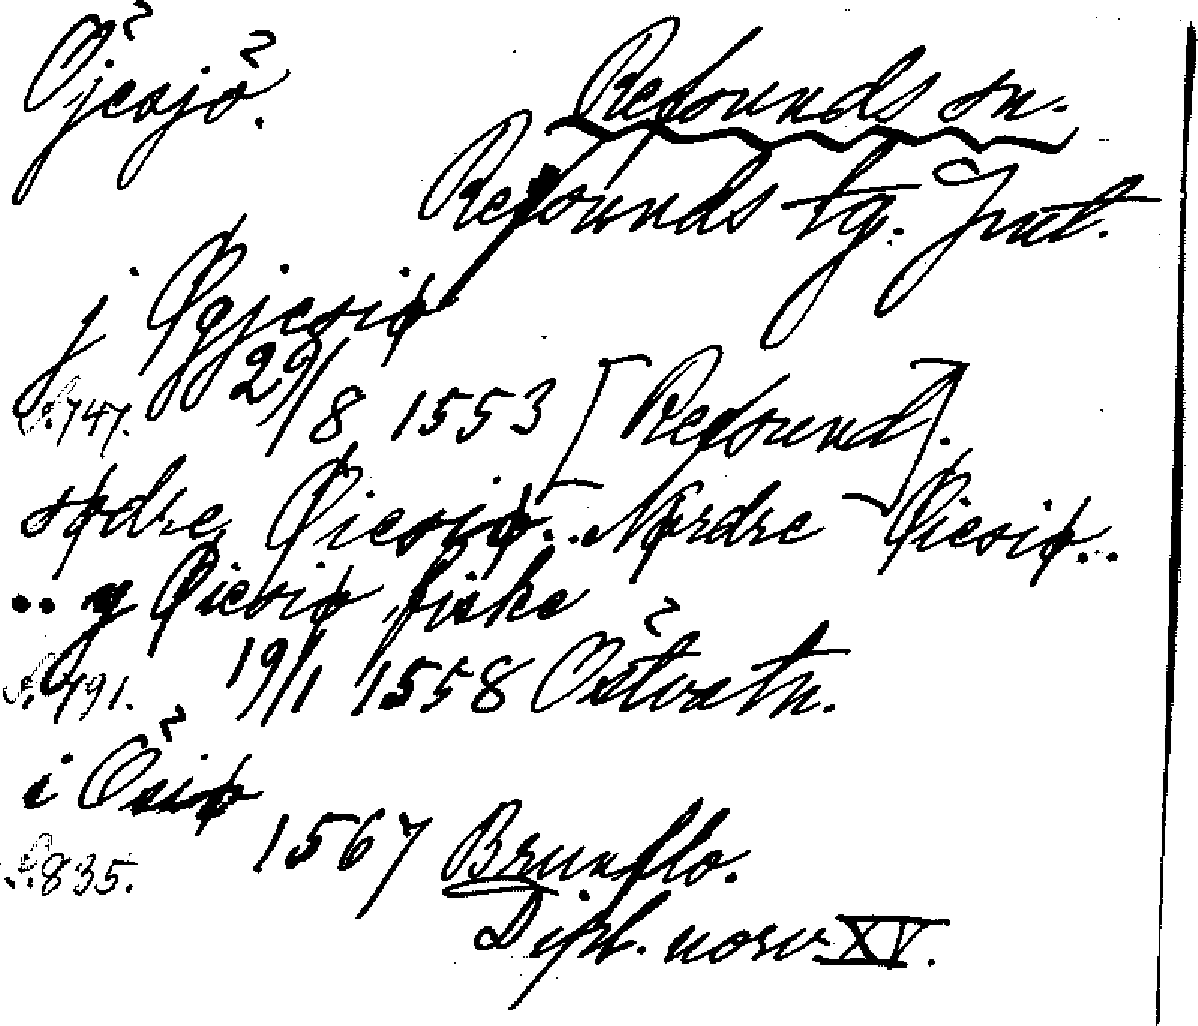 Öjesjö.
Refsunds sn.
Refsunds tg. Jmtl.
j Øgjesiø
S. 747. 29/8 1553 [Refsund].
sødre Øiesiø... Nørdre Øiesiø..
.. y Øiesiø fiske
S. 791. 19/1 1558 Östvatn.
i Össiø
S. 835. 1567 Brunflo.
Dipl. norv. XV.